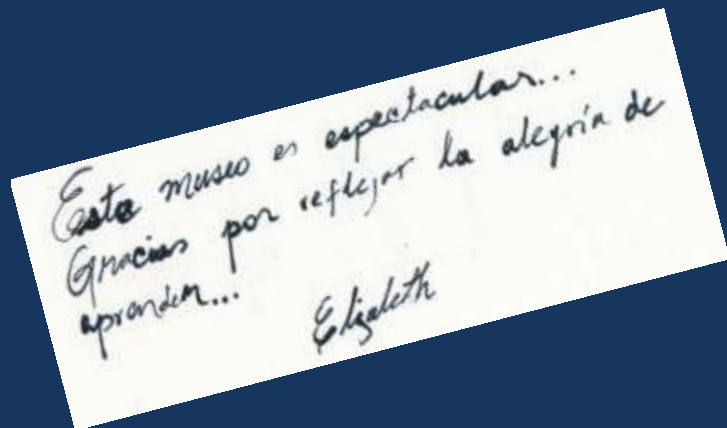 Este museo es espectacular...
Gracias por reflejar la alegría de
aprender...
Elizabeth